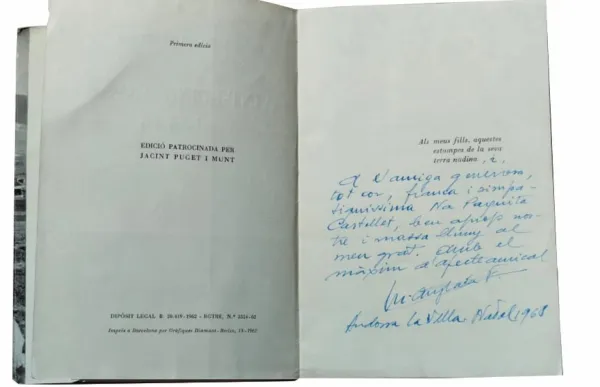 Primera edició
EDICIÓ PATROCINADA PER
JACINT PUGET I MUNT
DIPÒSIT LEGAL B: 20.419-1962 - NÚTRE. N.º 3515-62
Imprès a Barcelona per Gràfiques Diamant.-Berlín, 18.-1962
Als meus fills, aquestes
estampes de la seva
terra nadiua, i,
A l'amiga generosa,
tot cor, franca i simpa-
tiquíssima Na Paquita
Castellet, ben
i massa lluny al
meu grat. Amb el
màxim d'afecte amical
Andorra La Vella. Nadal 1968